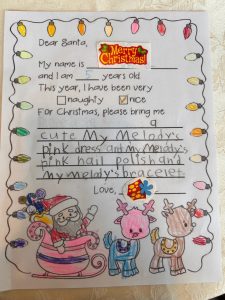 Dear Santa,
Merry Christmas!
My name is
and I am 5 years old
This year, I have been very
naughty nice
For Christmas, please bring me
a
cute My Melody's
pink dress and My Merody's
pink nail polish and
My meldy's bracelet
Love,